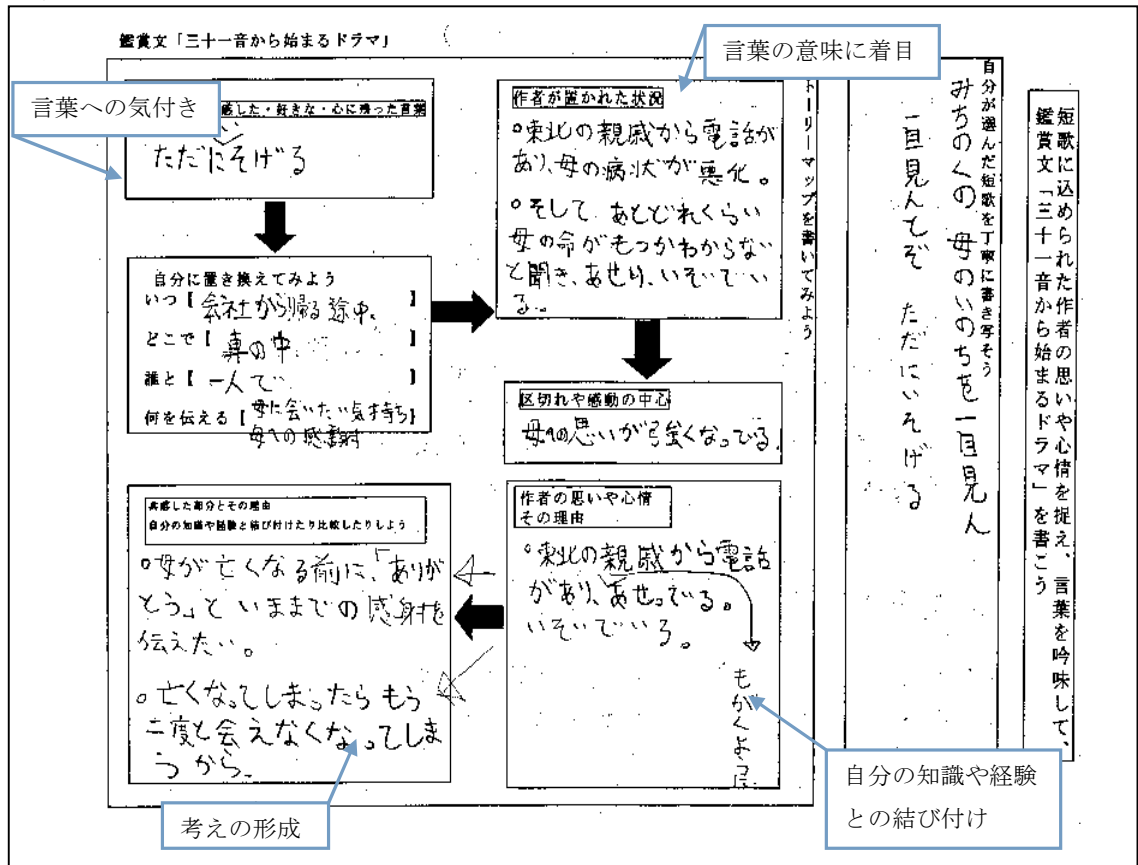 短歌に込められた作者の思いや心情を捉え、言葉を吟味して、
鑑賞文「三十一音から始まるドラマ」を書こう
自分が選んだ短歌を丁寧に書き写そう
みちのくの 母のいのちを一目見ん
一目見んとぞ ただにいそげる
トーリーマップを書いてみよう
鑑賞文「三十一音から始まるドラマ」
言葉への気付き
感した・好きな・心に残った言葉
い
ただにそげる
自分に置き換えてみよう
いつ【会社から帰る途中。】
どこで【車の中】
誰と【一人で】
何を伝える【母に会いたい気持ち
母への感謝】
言葉の意味に着目
作者が置かれた状況
○東北の親戚から電話が
あり、母の病状が悪化。
○そして あとどれくらい
母の命がもつかわからない
と聞き、あせり、いそいでい
る。
区切れや感動の中心
母への思いが強くなっている。
作者の思いや心情
その理由
○東北の親戚から電話
があり、あせっている。
いそいでいる。
もがくように
自分の知識や経験
との結び付け
共感した部分とその理由
自分の知識や経験と結び付けたり比較したりしよう
○母が亡くなる前に、「ありが
とう」といままでの感謝を
伝えたい。
○亡くなってしまったらもう
二度と会えなくなってしま
うから。
考えの形成